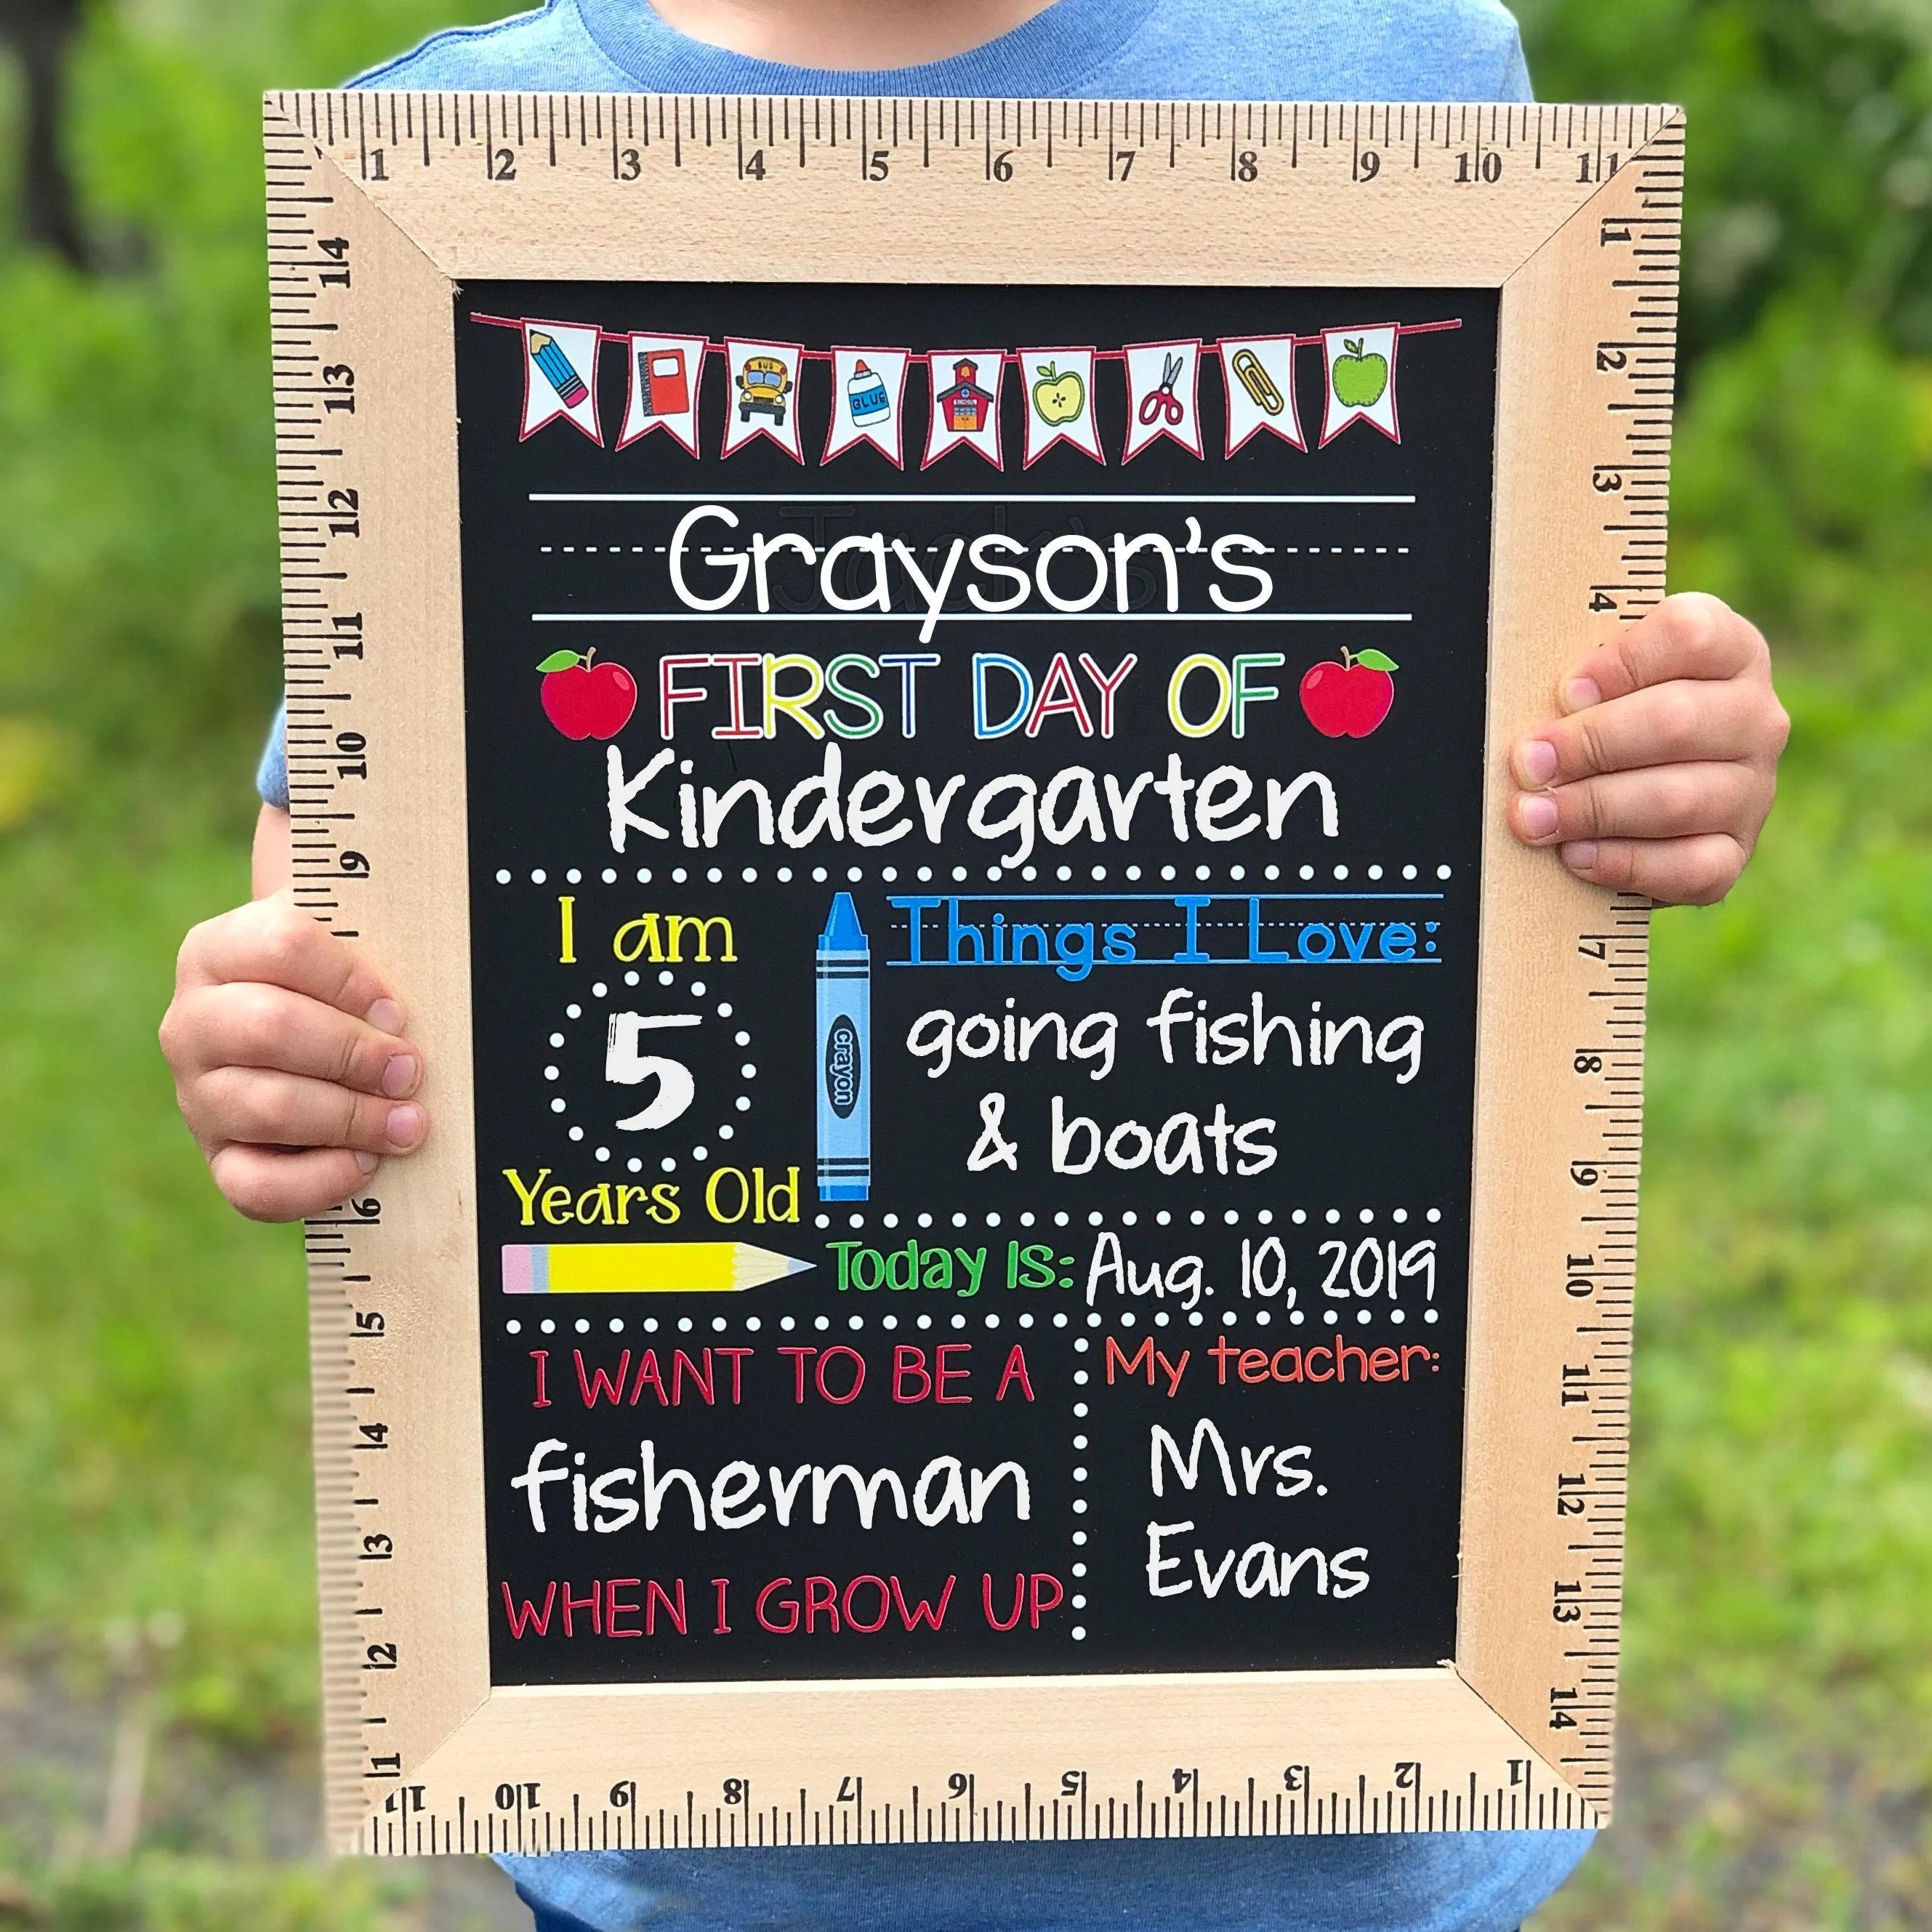 1 2 3 4 5 6 7 8 9 10 11
14 13 12 11 10 9 6 5 4 3 2 1
1 2 3 4 7 8 9 10 11 12 13 14
BUS
GLUE
SCHOOL
Grayson's
FIRST DAY OF
Kindergarten
I am
5
Years Old
crayon
Things I Love:
going fishing
& boats
Today Is: Aug. 10, 2019
I WANT TO BE A
fisherman
WHEN I GROW UP
My teacher:
Mrs.
Evans
11 10 9 8 7 6 5 4 3 2 1